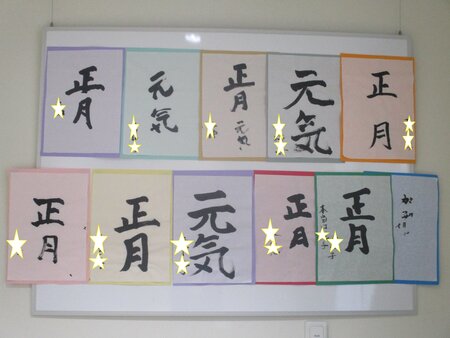 正月
元気
正月
元気
元気
正月
正月
正月
元気
正月
正月